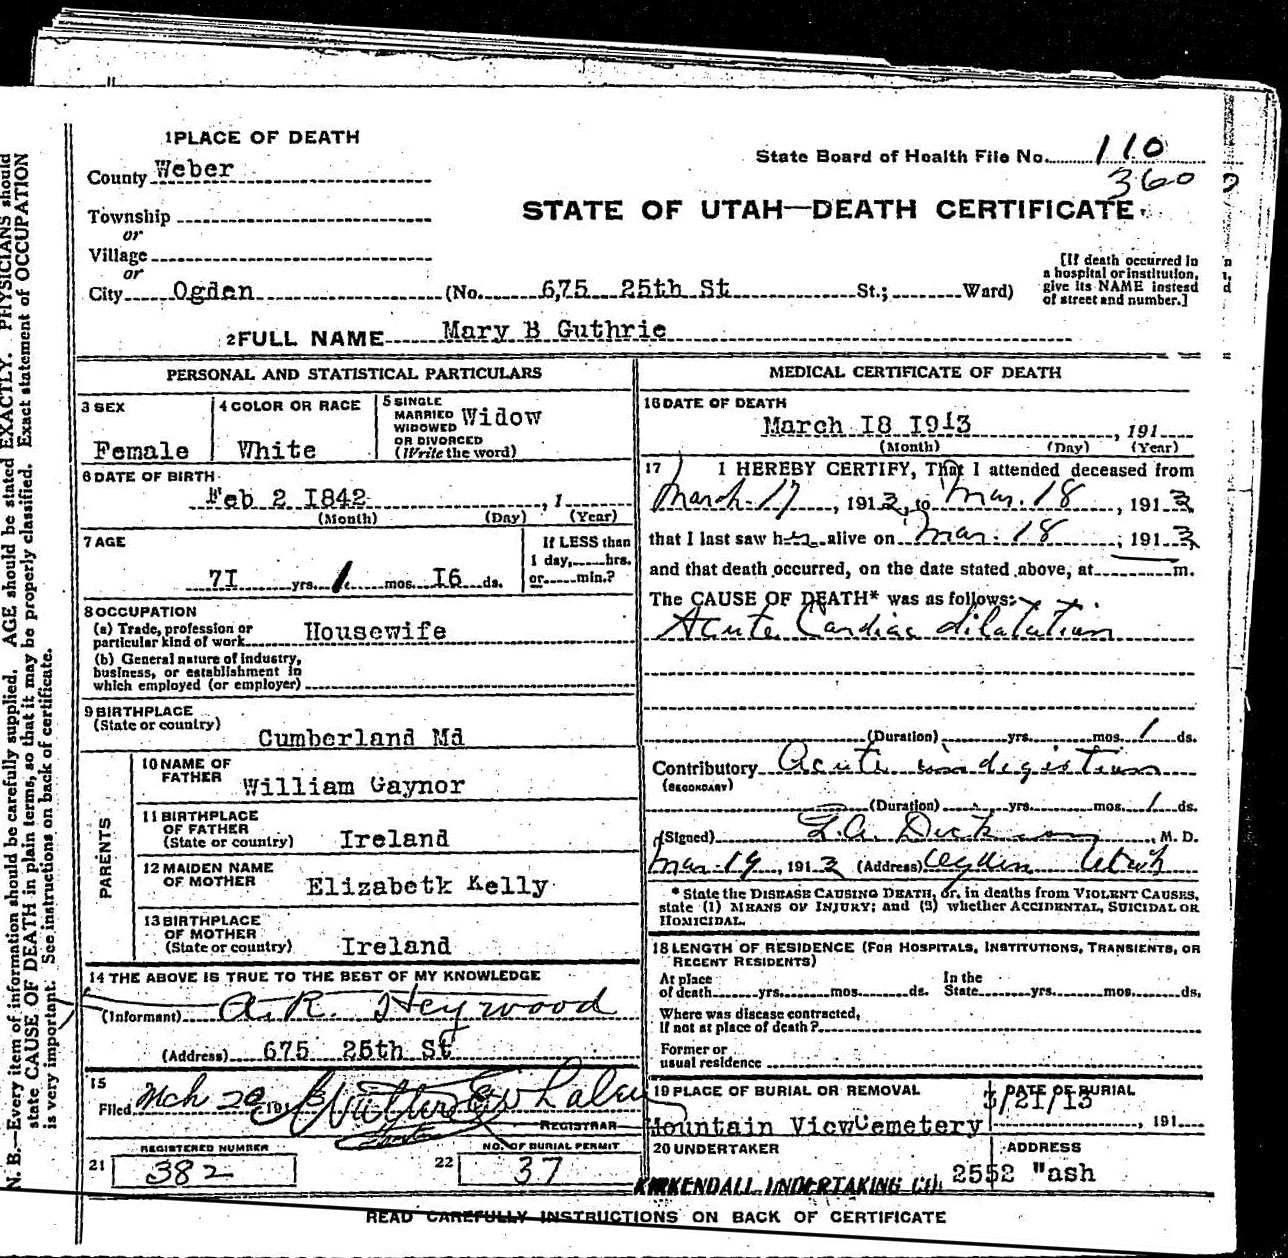 1 PLACE OF DEATH
County Weber
State Board of Health File No. 110
360
Township
or
Village
or
City Ogden (No. 675 25th St St.; Ward)
STATE OF UTAH—DEATH CERTIFICATE.
[If death occurred in
a hospital or institution,
give its NAME instead
of street and number.]
2 FULL NAME Mary B Guthrie
PERSONAL AND STATISTICAL PARTICULARS
3 SEX
Female
4 COLOR OR RACE
White
5 SINGLE
MARRIED
WIDOWED
OR DIVORCED
(Write the word)
Widow
6 DATE OF BIRTH
Feb 2 I842 , 1
(Month) (Day) (Year)
7 AGE
7I yrs. 1 mos. I6 ds.
If LESS than
1 day, hrs.
or min.?
8 OCCUPATION
(a) Trade, profession or
particular kind of work Housewife
(b) General nature of industry,
business, or establishment in
which employed (or employer)
9 BIRTHPLACE
(State or country)
Cumberland Md
PARENTS
10 NAME OF
FATHER
William Gaynor
11 BIRTHPLACE
OF FATHER
(State or country) Ireland
12 MAIDEN NAME
OF MOTHER Elizabeth Kelly
13 BIRTHPLACE
OF MOTHER
(State or country) Ireland
14 THE ABOVE IS TRUE TO THE BEST OF MY KNOWLEDGE
(Informant) A. R. Heywood
(Address) 675 25th St
15
Filed Mch 20 191
REGISTRAR
REGISTERED NUMBER
21 382
NO. OF BURIAL PERMIT
22 37
MEDICAL CERTIFICATE OF DEATH
16 DATE OF DEATH
March I8 I9I3 , 191
(Month) (Day) (Year)
17 I HEREBY CERTIFY, That I attended deceased from
March 17, 1913, to Mar. 18, 1913,
that I last saw her alive on Mar. 18, 1913,
and that death occurred, on the date stated above, at m.
The CAUSE OF DEATH* was as follows:
Acute Cardiac dilatation
(Duration) yrs. mos. 1 ds.
Contributory Acute indigestion
(SECONDARY)
(Duration) yrs. mos. 1 ds.
(Signed) M. D.
Mar. 19, 1913 (Address) Ogden Utah
* State the DISEASE CAUSING DEATH, or, in deaths from VIOLENT CAUSES,
state (1) MEANS OF INJURY; and (2) whether ACCIDENTAL, SUICIDAL OR
HOMICIDAL.
18 LENGTH OF RESIDENCE (FOR HOSPITALS, INSTITUTIONS, TRANSIENTS, OR
RECENT RESIDENTS)
At place
of death yrs. mos. ds.
In the
State yrs. mos. ds.
Where was disease contracted,
If not at place of death?
Former or
usual residence
19 PLACE OF BURIAL OR REMOVAL
Mountain View Cemetery
DATE OF BURIAL
3/21/13 , 191
20 UNDERTAKER
KIRKENDALL UNDERTAKING CO.
ADDRESS
2552 "ash
READ CAREFULLY INSTRUCTIONS ON BACK OF CERTIFICATE
N. B.—Every item of information should be carefully supplied. AGE should be stated EXACTLY. PHYSICIANS should
state CAUSE OF DEATH in plain terms, so that it may be properly classified. Exact statement of OCCUPATION
is very important. See instructions on back of certificate.